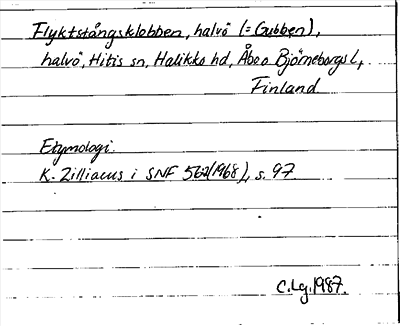 Flyktstångsklobben, halvö (= Gubben),
halvö, Hitis sn, Halikko hd, Åbo o Björneborgs l,
Finland
Etymologi:
K. Zilliacus i SNF 56 (1968), s. 97.
C. Lg. 1987.